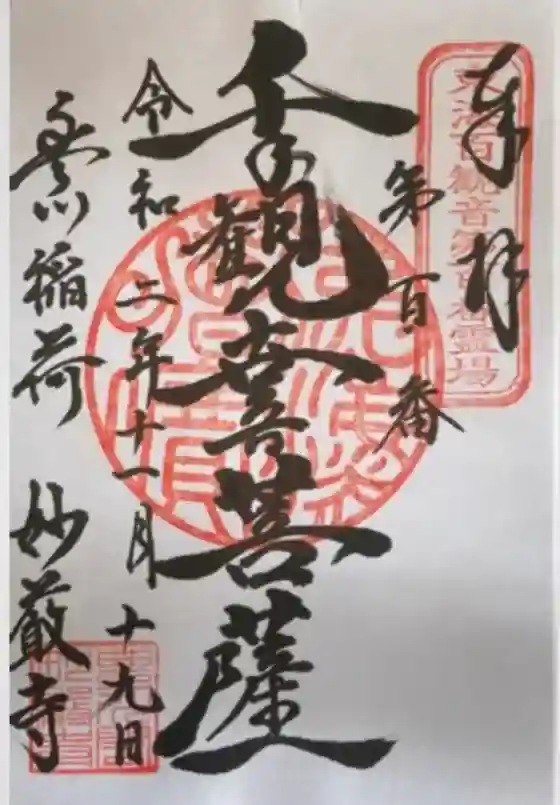 奉拝
東海百観音第百番霊場
第百番
千手觀音菩薩
令和二年十一月十九日
豊川稲荷 妙厳寺